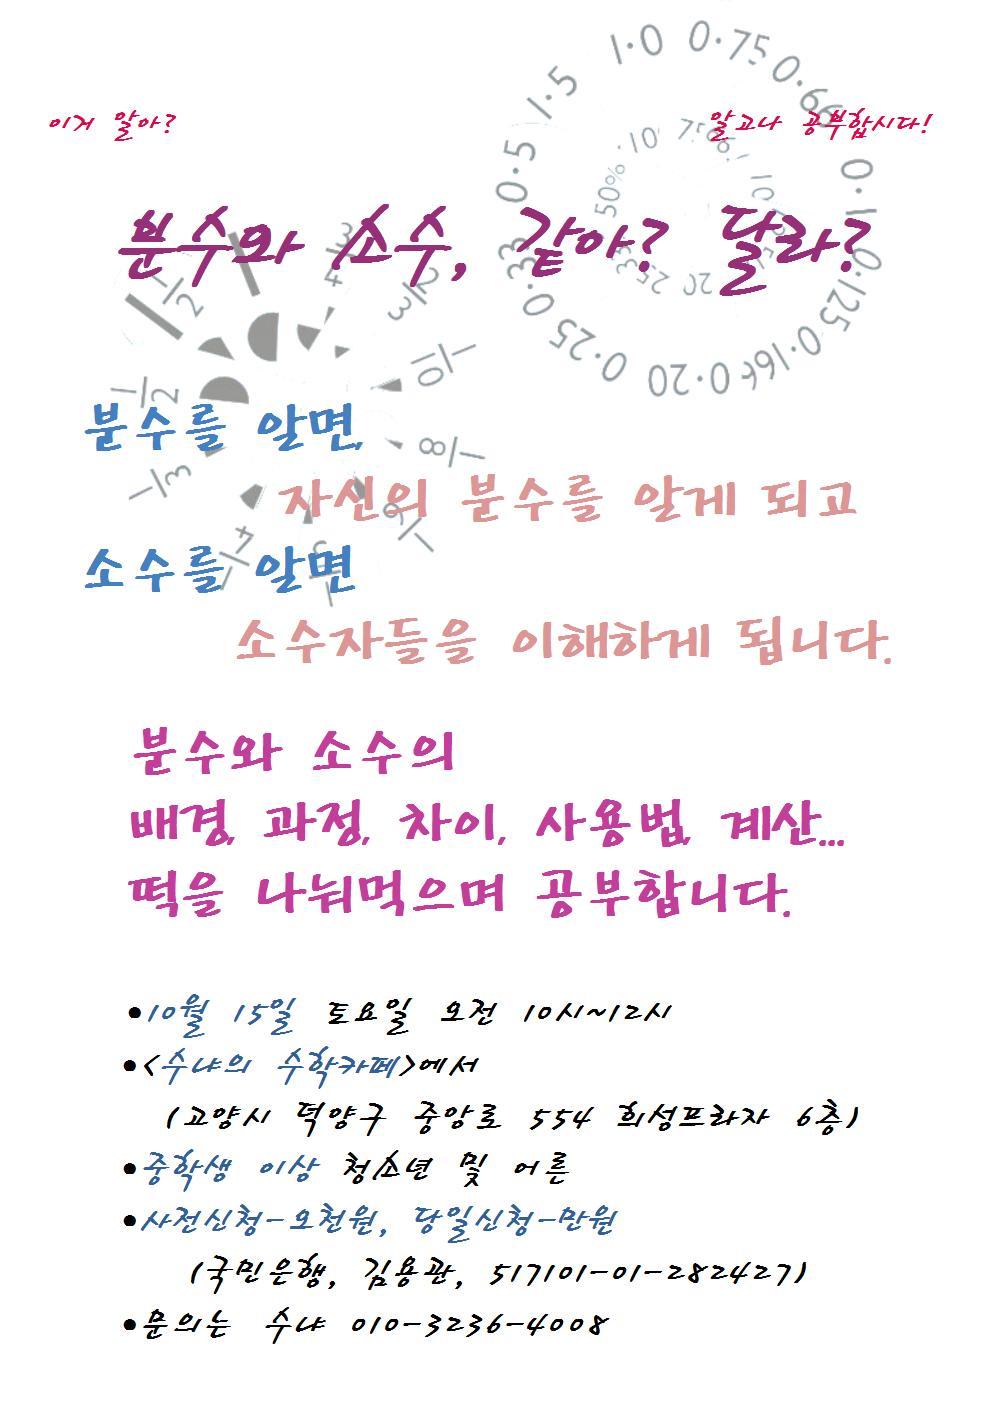 이거 알아?
알고나 공부합시다!
분수와 소수, 같아? 달라?
분수를 알면,
자신의 분수를 알게 되고
소수를 알면
소수자들을 이해하게 됩니다.
분수와 소수의
배경, 과정, 차이, 사용법, 계산...
떡을 나눠먹으며 공부합니다.
•10월 15일 토요일 오전 10시~12시
•<수냐의 수학카페>에서
(고양시 덕양구 중앙로 554 희성프라자 6층)
•중학생 이상 청소년 및 어른
•사전신청-오천원, 당일신청-만원
(국민은행, 김용관, 517101-01-282427)
•문의는 수냐 010-3236-4008
1.0
0.75
0.66
0.1
0.125
0.166
0.20
0.25
0.33
0.5
1.5
50%
20
25
1/2
1/2
1/3
1/4
1/8
1/10
3/2